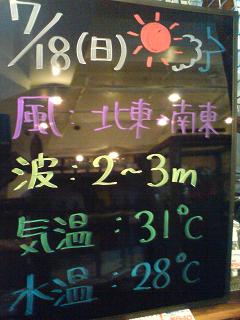 7/18(日)
風：北東→南東
波：2~3m
気温：31℃
水温：28℃